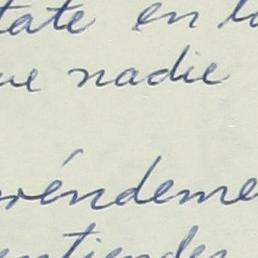 tate en lo
ue nadie
réndeme
entiendes